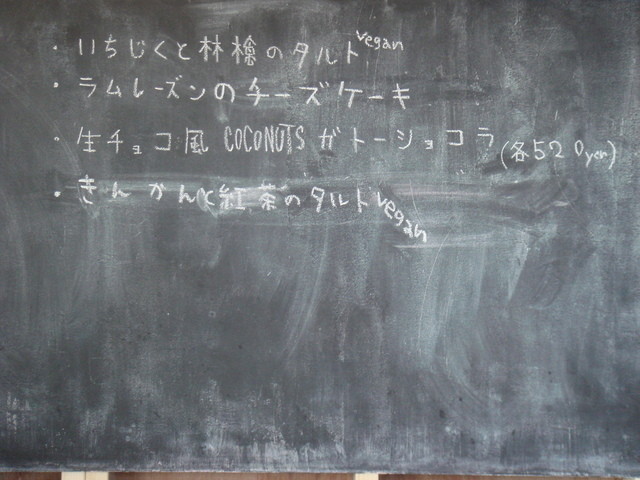 ・いちじくと林檎のタルト vegan
・ラムレーズンのチーズケーキ
・生チョコ風 COCONUTS ガトーショコラ (各520yen)
・きんかんと紅茶のタルト vegan